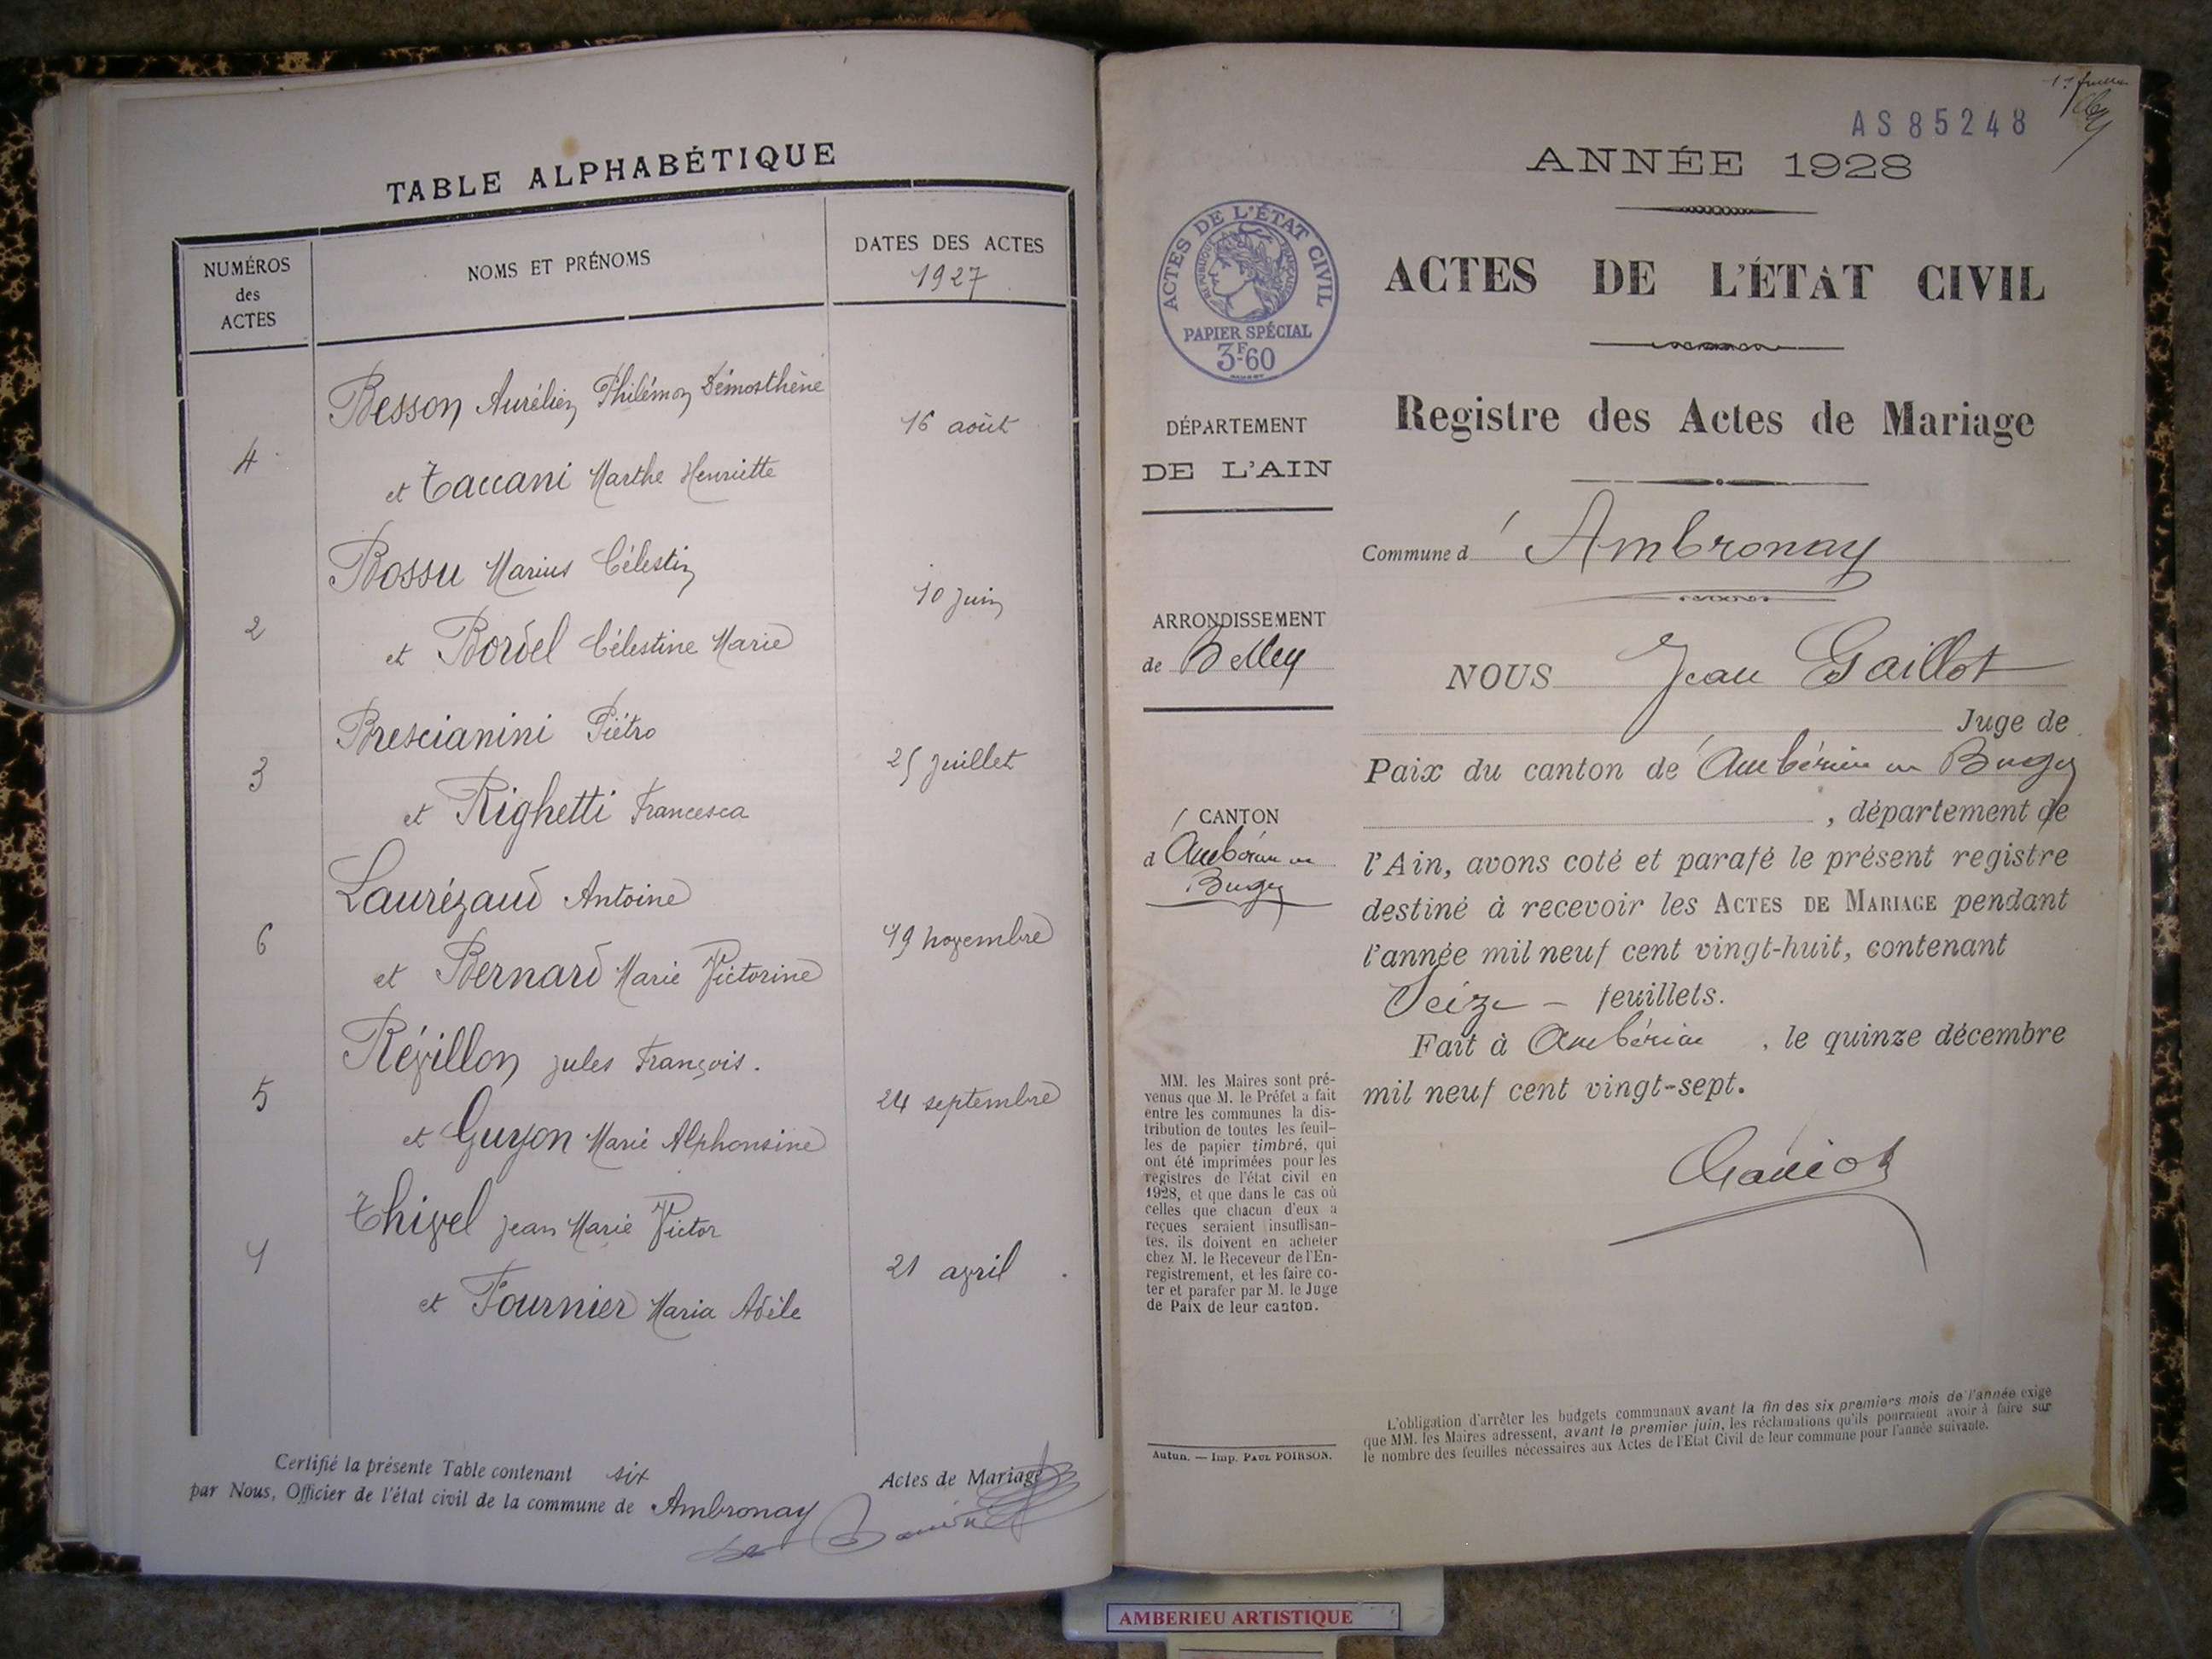 TABLE ALPHABÉTIQUE
NUMÉROS
des
ACTES
NOMS ET PRÉNOMS
DATES DES ACTES
1927
Besson Aurélien Philémon Démosthène
4
16 août
et Taccani Marthe Henriette
Bossu Marius Célestin
2
10 juin
et Bordel Célestine Marie
Brescianini Piétro
3
25 juillet
et Righetti Francesca
Laurézaud Antoine
6
19 novembre
et Bernard Marie Victorine
Révillon Jules François.
5
24 septembre
et Guyon Marie Alphonsine
Thivel Jean Marie Victor
1
21 avril
et Fournier Maria Adèle
Certifié la présente Table contenant six Actes de Mariage
par Nous, Officier de l'état civil de la commune de Ambronay
AS 85248
ANNÉE 1928
ACTES DE L'ÉTAT CIVIL
RÉPUBLIQUE FRANÇAISE
PAPIER SPÉCIAL
3F60
DÉPARTEMENT
DE L'AIN
ARRONDISSEMENT
de Belley
CANTON
d'Ambérieu en
Bugey
MM. les Maires sont pré-
venus que M. le Préfet a fait
entre les communes la dis-
tribution de toutes les feuil-
les de papier timbré, qui
ont été imprimées pour les
registres de l'état civil en
1928, et que dans le cas où
celles que chacun d'eux a
reçues seraient insuffisan-
tes, ils doivent en acheter
chez M. le Receveur de l'En-
registrement, et les faire co-
ter et parafer par M. le Juge
de Paix de leur canton.
Autun. — Imp. PAUL POIRSON.
ACTES DE L'ÉTAT CIVIL
Registre des Actes de Mariage
Commune d'Ambronay
NOUS Jean Gaillot
Juge de
Paix du canton de Ambérieu en Bugey
, département de
l'Ain, avons coté et parafé le présent registre
destiné à recevoir les ACTES DE MARIAGE pendant
l'année mil neuf cent vingt-huit, contenant
Seize - feuillets.
Fait à Ambérieu , le quinze décembre
mil neuf cent vingt-sept.
L'obligation d'arrêter les budgets communaux avant la fin des six premiers mois de l'année exige
que MM. les Maires adressent, avant le premier juin, les réclamations qu'ils pourraient avoir à faire sur
le nombre des feuilles nécessaires aux Actes de l'Etat Civil de leur commune pour l'année suivante.
AMBERIEU ARTISTIQUE